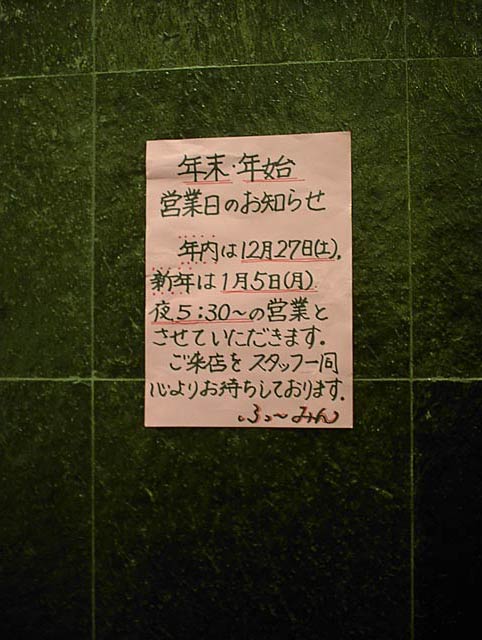 年末・年始
営業日のお知らせ
年内は12月27日(土),
新年は1月5日(月)
夜5:30〜の営業と
させていただきます.
ご来店をスタッフ一同
心よりお待ちしております.
ふ〜みん